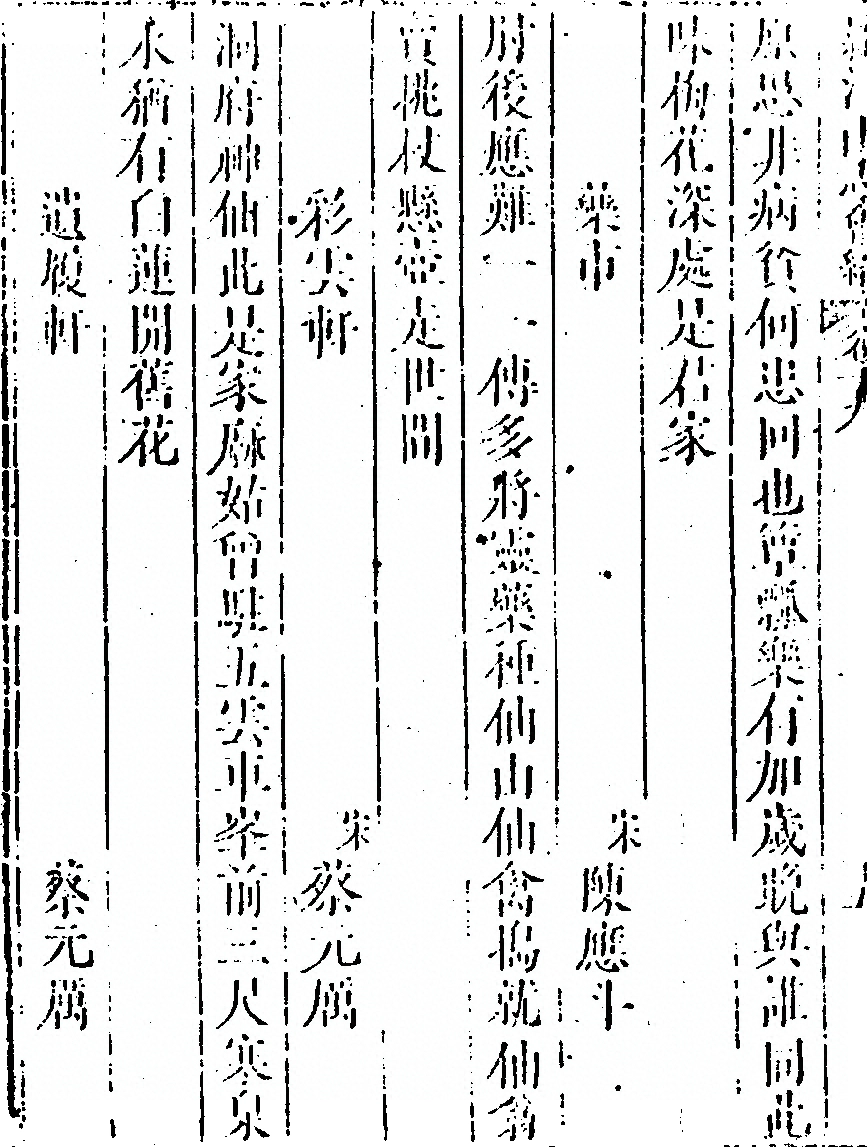 原思非病貧何患回也簞瓢樂有加歲晚與誰同此
味梅花深處是君家
藥市
宋陳應斗
肘後應難一一傳多將靈藥種仙山仙禽搗就仙翁
賣挑杖懸壺走世間
彩雲軒
宋蔡元厲
洞府神仙此是家麻姑曾駐五雲車峯前三尺寒泉
水猶有白蓮開舊花
遺履軒
蔡元厲